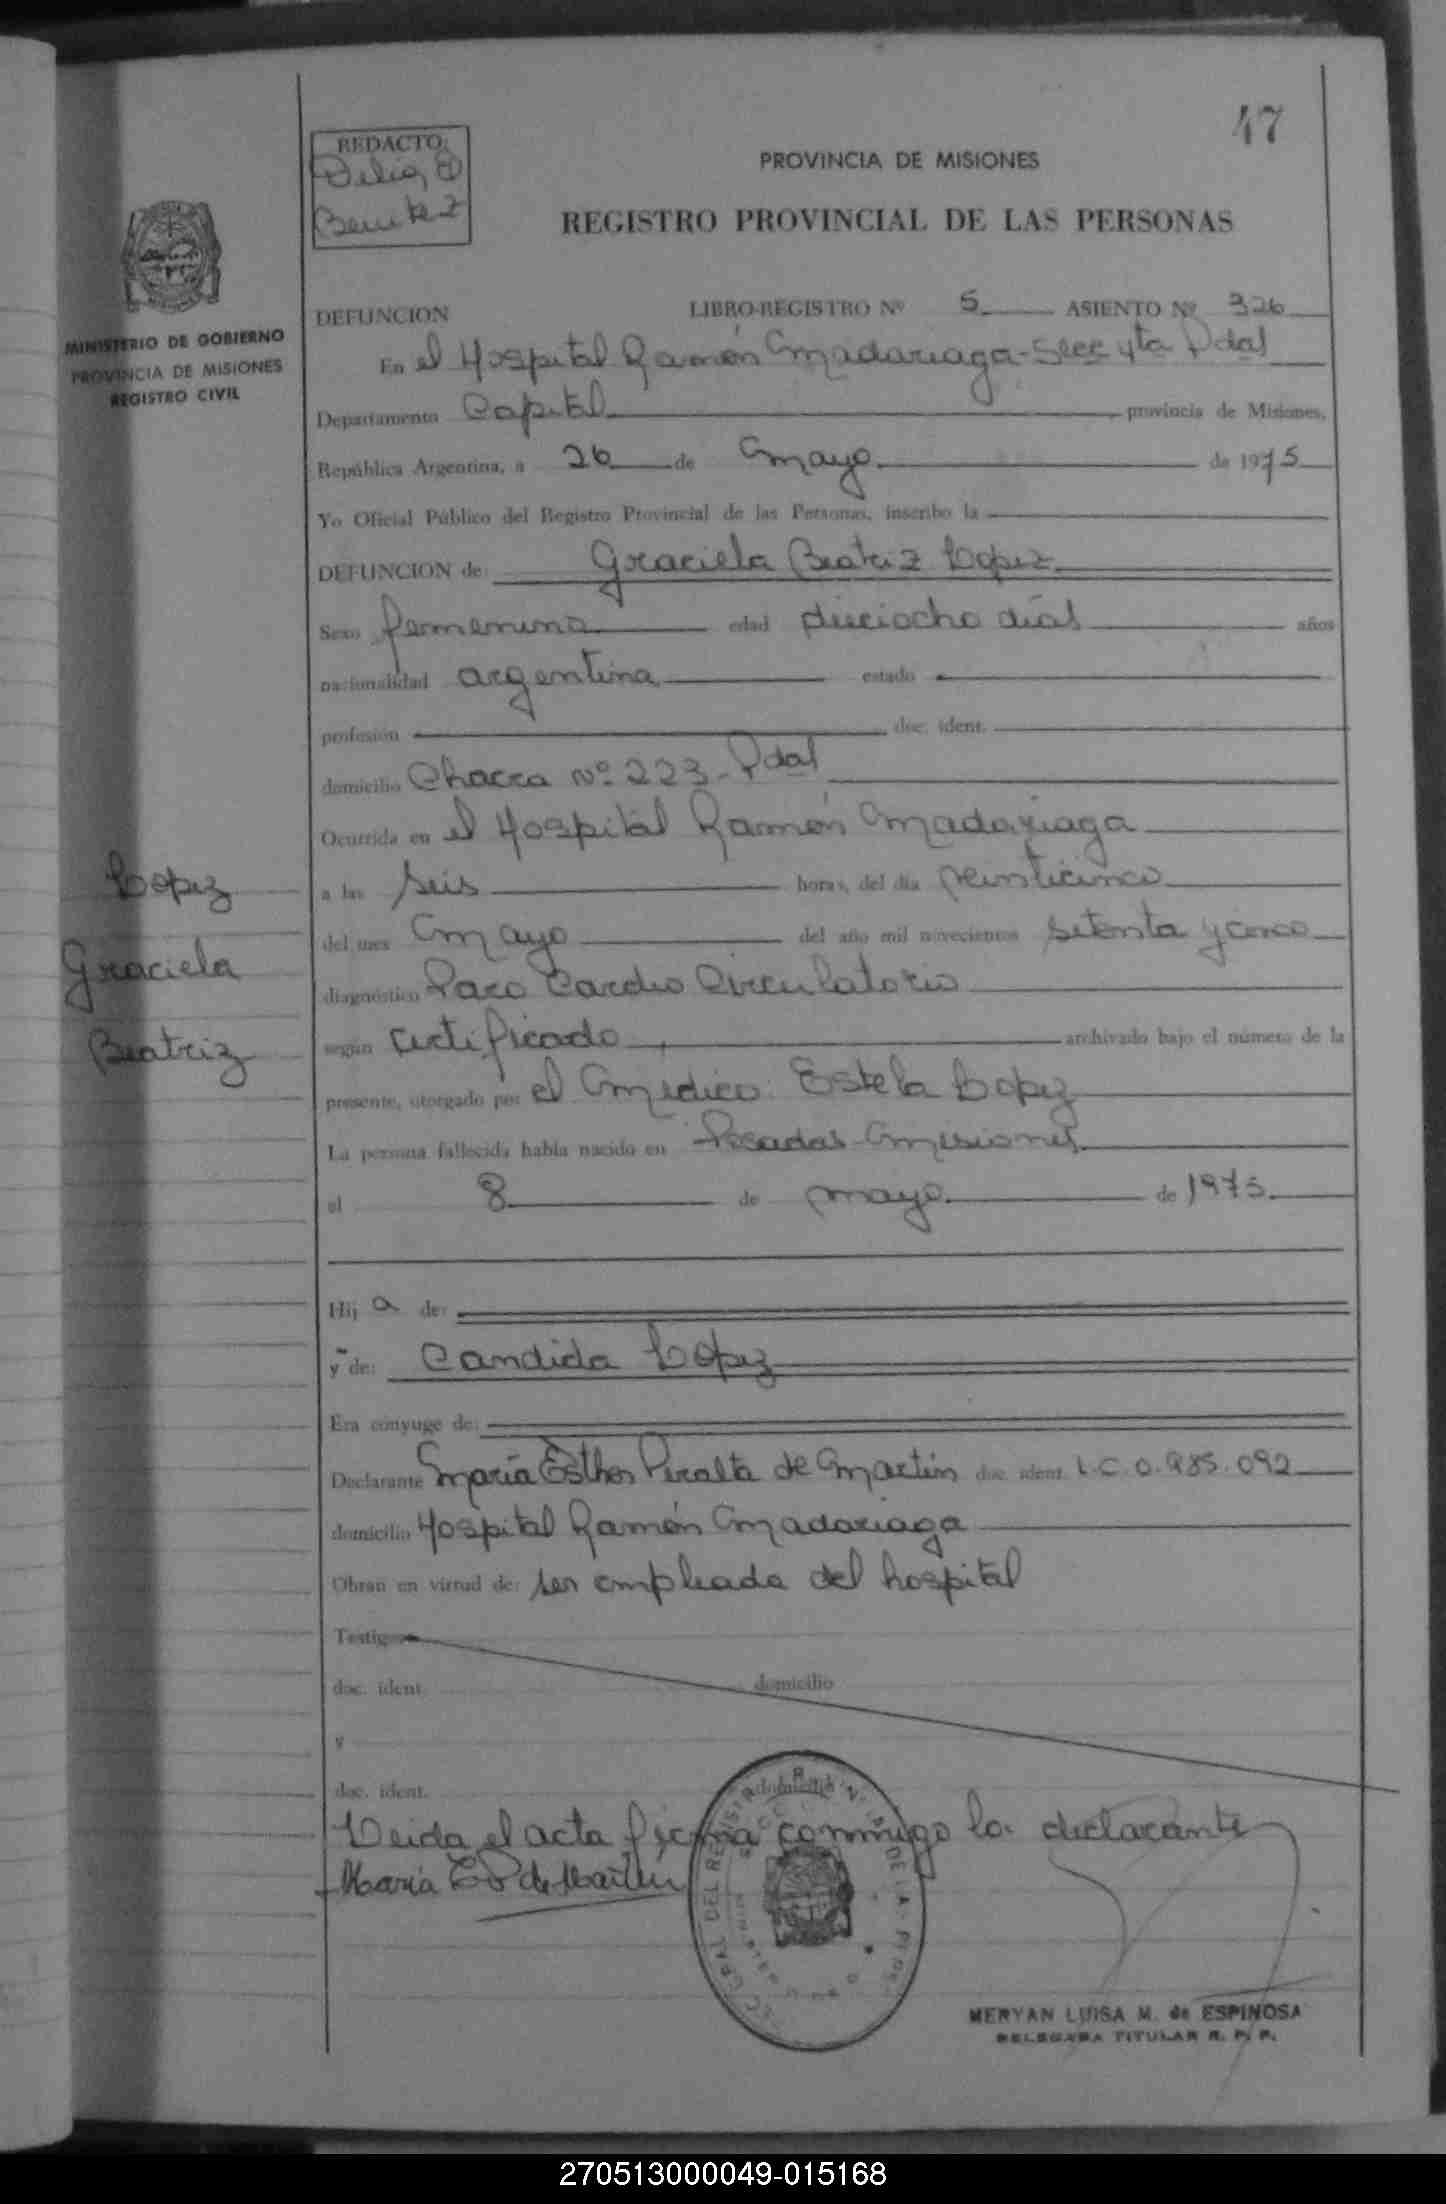 47
REDACTO:
Delia
Benitez
PROVINCIA DE MISIONES
REGISTRO PROVINCIAL DE LAS PERSONAS
MINISTERIO DE GOBIERNO
PROVINCIA DE MISIONES
REGISTRO CIVIL
DEFUNCION LIBRO-REGISTRO Nº 5 ASIENTO Nº 326
En el Hospital Ramón Madariaga-Secc 4ta Pdas
Departamento Capital provincia de Misiones,
República Argentina, a 26 de Mayo de 1975
Yo Oficial Público del Registro Provincial de las Personas, inscribo la
DEFUNCION de: Graciela Beatriz Lopez
Sexo femenino edad dieciocho días años
nacionalidad argentina estado
profesión doc. ident.
domicilio Chacra Nº 223-Pdas
Ocurrida en el Hospital Ramón Madariaga
a las seis horas, del día veinticinco
del mes Mayo del año mil novecientos setenta y cinco
diagnóstico Paro Cardio Circulatorio
según certificado archivado bajo el número de la
presente, otorgado por el Medico: Estela Lopez
La persona fallecida había nacido en Posadas-Misiones
el 8 de mayo de 1975
Lopez
Graciela
Beatriz
Hij a de:
y de: Candida Lopez
Era cónyuge de:
Declarante María Esther Peralta de Martin doc. ident. L.C.0.985.092
domicilio Hospital Ramón Madariaga
Obran en virtud de: ser empleada del hospital
Testigos
doc. ident. domicilio
y
doc. ident. domicilio
Leida el acta firma conmigo la declarante
María E P de Martin
MERYAN LUISA M. de ESPINOSA
DELEGADA TITULAR R. P. P.
270513000049-015168